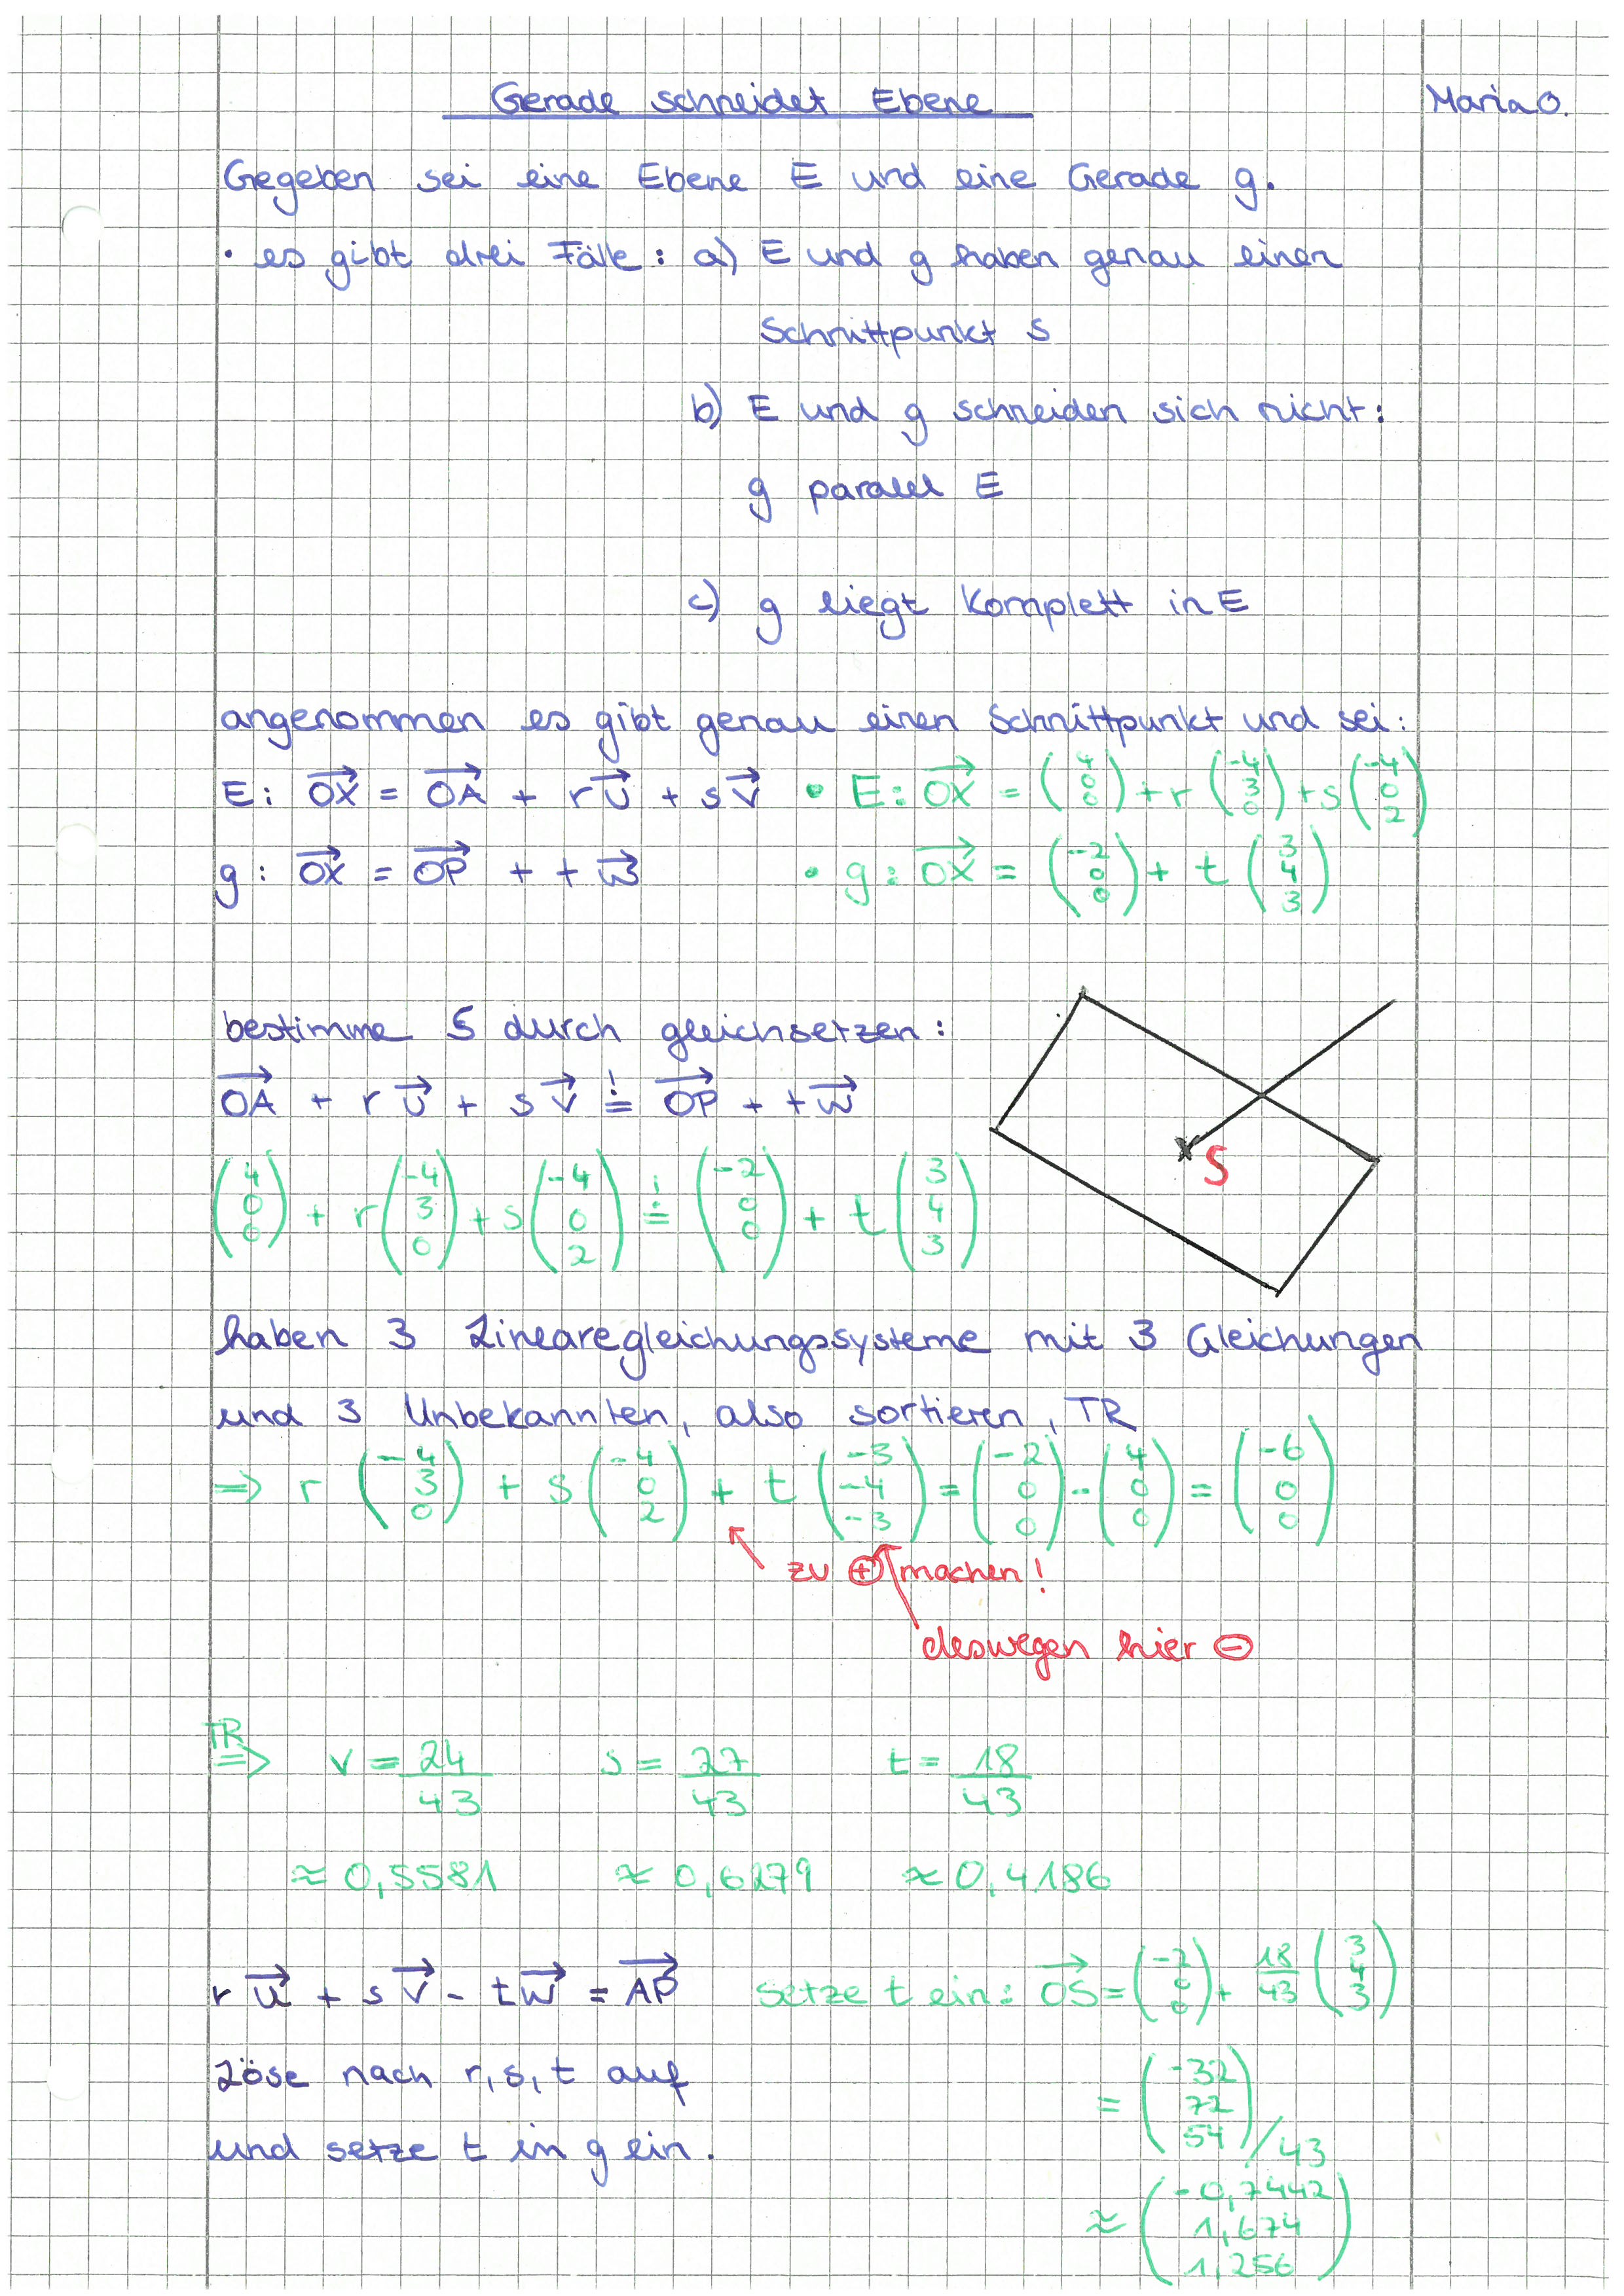 Gerade schneidet Ebene
Maria O.
Gegeben sei eine Ebene E und eine Gerade g.
• es gibt drei Fälle: a) E und g haben genau einen
Schnittpunkt S
b) E und g schneiden sich nicht:
g parallel E
c) g liegt komplett in E
angenommen es gibt genau einen Schnittpunkt und sei:
E: →OX = →OA + r→u + s→v • E: →OX = (4 0 0) + r (-4 3 0) + s (-4 0 2)
g: →OX = →OP + t →w • g: →OX = (-2 0 0) + t (3 4 3)
bestimme S durch gleichsetzen:
→OA + r→u + s→v != →OP + t→w
S
(4 0 0) + r (-4 3 0) + s (-4 0 2) != (-2 0 0) + t (3 4 3)
haben 3 Linearegleichungssysteme mit 3 Gleichungen
und 3 Unbekannten, also sortieren, TR
=> r (-4 3 0) + s (-4 0 2) + t (-3 -4 -3) = (-2 0 0) - (4 0 0) = (-6 0 0)
zu ⊕ machen!
deswegen hier ⊖
TR => v = 24/43 s = 27/43 t = 18/43
≈ 0,5581 ≈ 0,6279 ≈ 0,4186
r→u + s→v - t→w = →AP setze t ein: →OS = (-2 0 0) + 18/43 (3 4 3)
Löse nach r, s, t auf
= (-32 72 54)/43
und setze t in g ein.
≈ (-0,7442 1,674 1,256)